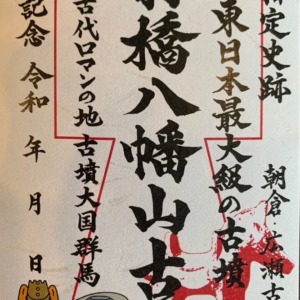 指定史跡
東日本最大級の古墳
朝倉・広瀬古
前橋八幡山古
古代ロマンの地 古墳大国群馬
記念 令和 年 月 日